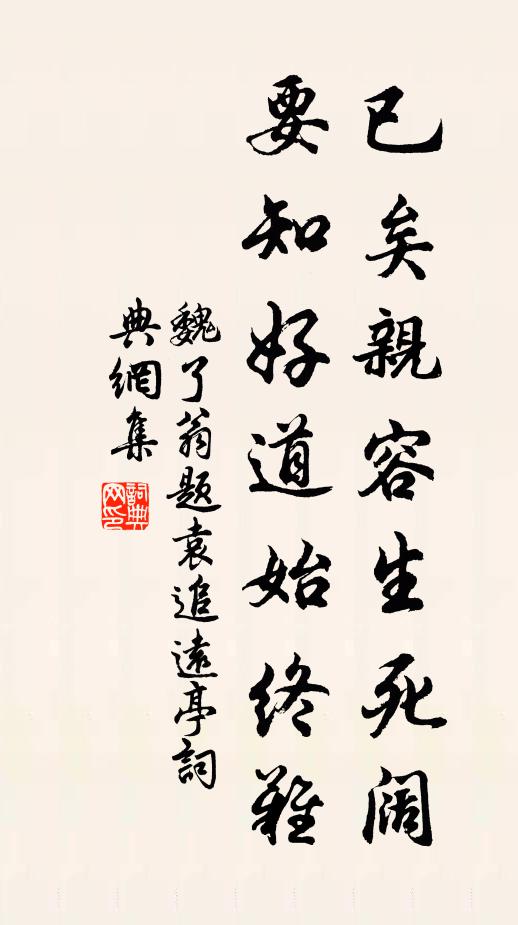 已矣親容生死阔
要知好道始终難
魏了翁题袁追遠亭詞
典網集
詞典
网印